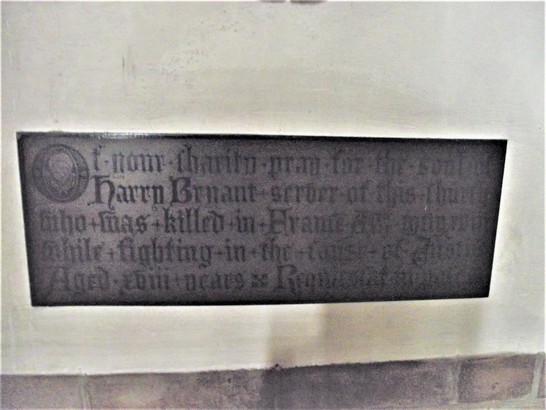 Of · your · charity · pray · for · the · soul of
Harry Bryant · server of this Church
who + was + killed in + France
while + fighting + in + the + cause + of Justice
Aged · xviii + years Requiescat